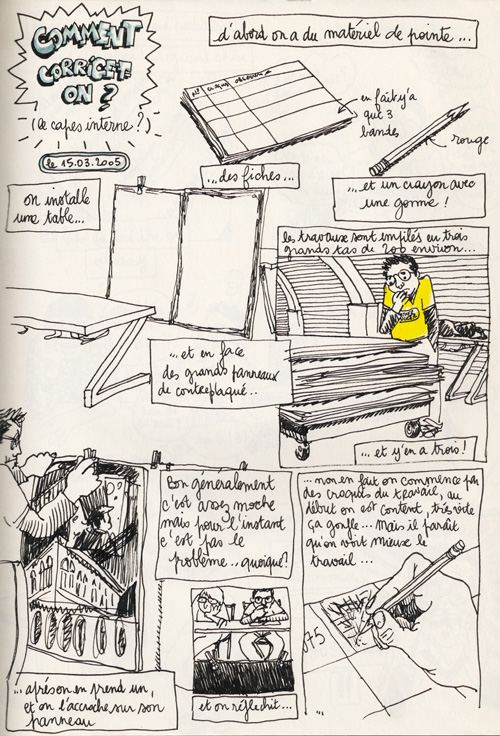 COMMENT
CORRIGET-
ON ?
(le capes interne ?)
le 15.03.2005
d'abord on a du matériel de pointe...
N°
en fait y'a
que 3
bandes
rouge
...des fiches...
...et un crayon avec
une gomme !
on installe
une table...
...et en face
des grands panneaux
de contreplaqué...
les travaux sont empilés en trois
grands tas de 200 environ...
...et y'en a trois !
...après on en prend un,
et on l'accroche sur son
panneau
Bon généralement
c'est assez moche
mais pour l'instant
c'est pas le
problème.. quoique !
et on réfléchit...
...non en fait on commence par
des croquis du travail, au
début on est content, très vite
ça gonfle... Mais il paraît
qu'on voit mieux le
travail...
075
...